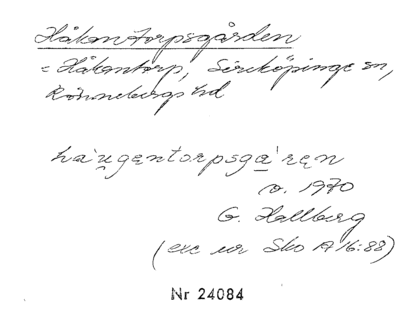 Håkantorpsgården
= Håkantorp, Sireköpinge sn,
Rönnebergs hd
hau̯gentorpsgaren
v. 1970
G. Hallberg
(exc ur Sko A 16:88)
Nr 24084